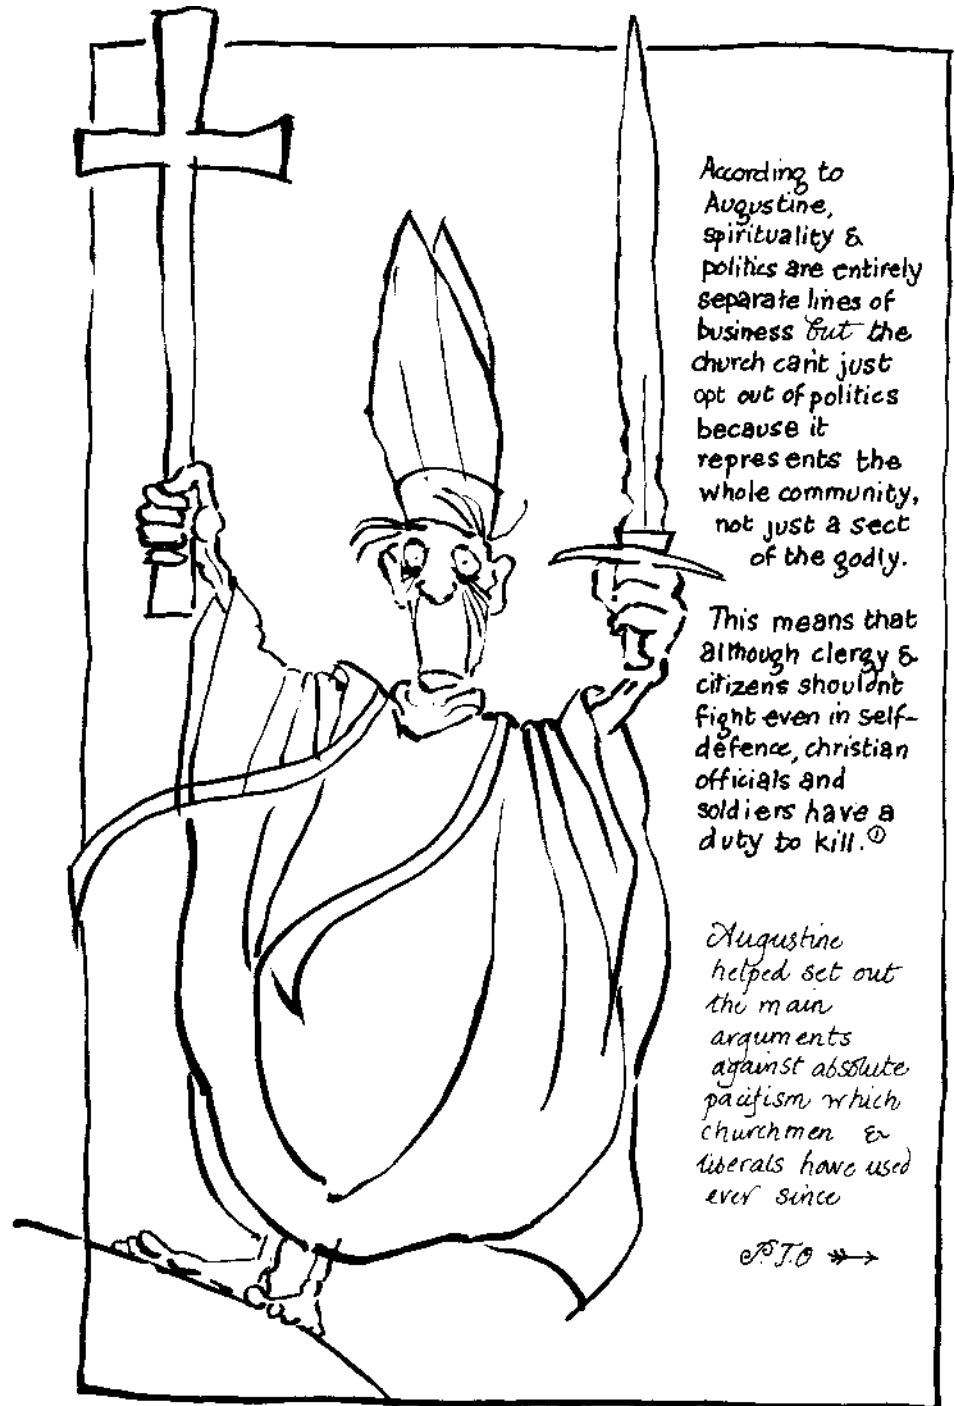 According to
Augustine,
spirituality &
politics are entirely
separate lines of
business but the
church can't just
opt out of politics
because it
represents the
whole community,
not just a sect
of the godly.
This means that
although clergy &
citizens shouldn't
fight even in self-
defence, christian
officials and
soldiers have a
duty to kill.①
Augustine
helped set out
the main
arguments
against absolute
pacifism which
churchmen &
liberals have used
ever since
P.T.O